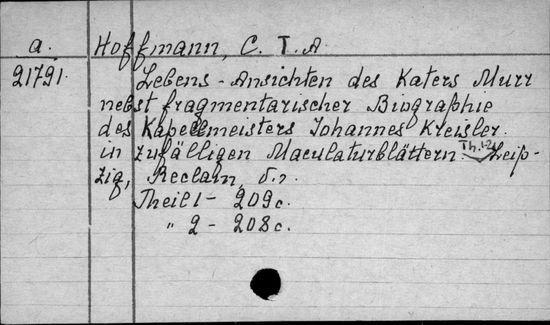 a. Hoffmann, C. T. A.
21791. Lebens-Ansichten des Katers Murr
nebst fragmentarischer Biographie
des Kapellmeisters Johannes Kreisler
in zufälligen Maculaturblättern. Th. 1-2. Leip-
zig, Reclam, s. a.
Theil 1 - 209 c.
" 2 - 208 c.